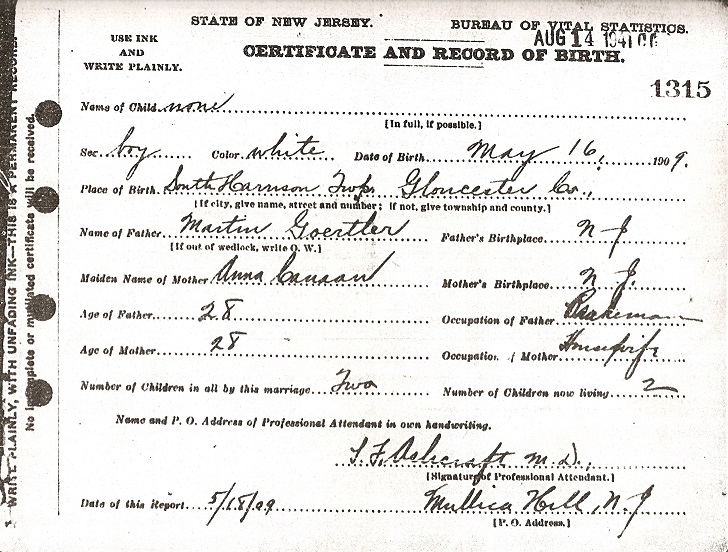 STATE OF NEW JERSEY. BUREAU OF VITAL STATISTICS.
USE INK
AND
WRITE PLAINLY.
AUG 14 1941
CERTIFICATE AND RECORD OF BIRTH.
1315
Name of Child none
[In full, if possible.]
Sex boy Color white Date of Birth May 16, 1909.
Place of Birth South Harrison Twp. Gloucester Co.,
[If city, give name, street and number; if not, give township and county.]
Name of Father Martin Goertler Father's Birthplace N J
[If out of wedlock, write O. W.]
Maiden Name of Mother Anna Canaan Mother's Birthplace N J.
Age of Father 28 Occupation of Father Brakeman
Age of Mother 28 Occupation of Mother Housewife
Number of Children in all by this marriage Two Number of Children now living 2
Name and P. O. Address of Professional Attendant in own handwriting.
S. F. Ashcraft M.D.,
[Signature of Professional Attendant.]
Date of this Report 5/18/09 Mullica Hill, N. J
[P. O. Address.]
WRITE PLAINLY, WITH UNFADING INK—THIS IS A PERMANENT RECORD.
No incomplete or mutilated certificate will be received.